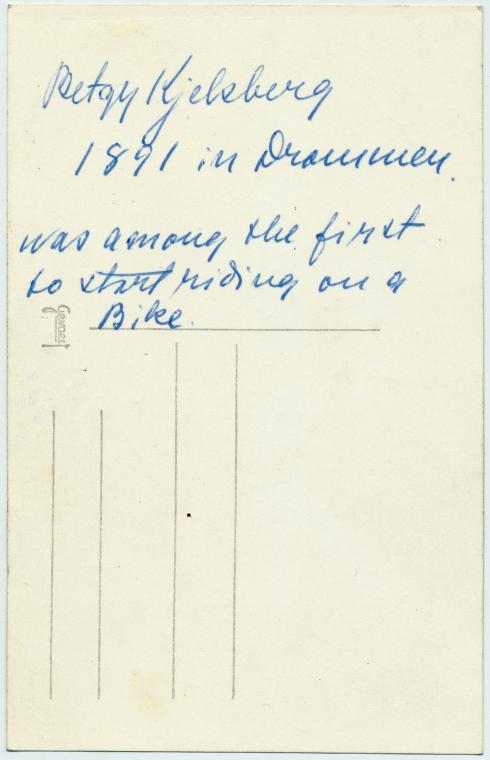 Betzy Kjelsberg
1891 in Drammen.
was among the first
to start riding on a
Bike.
Gevaert